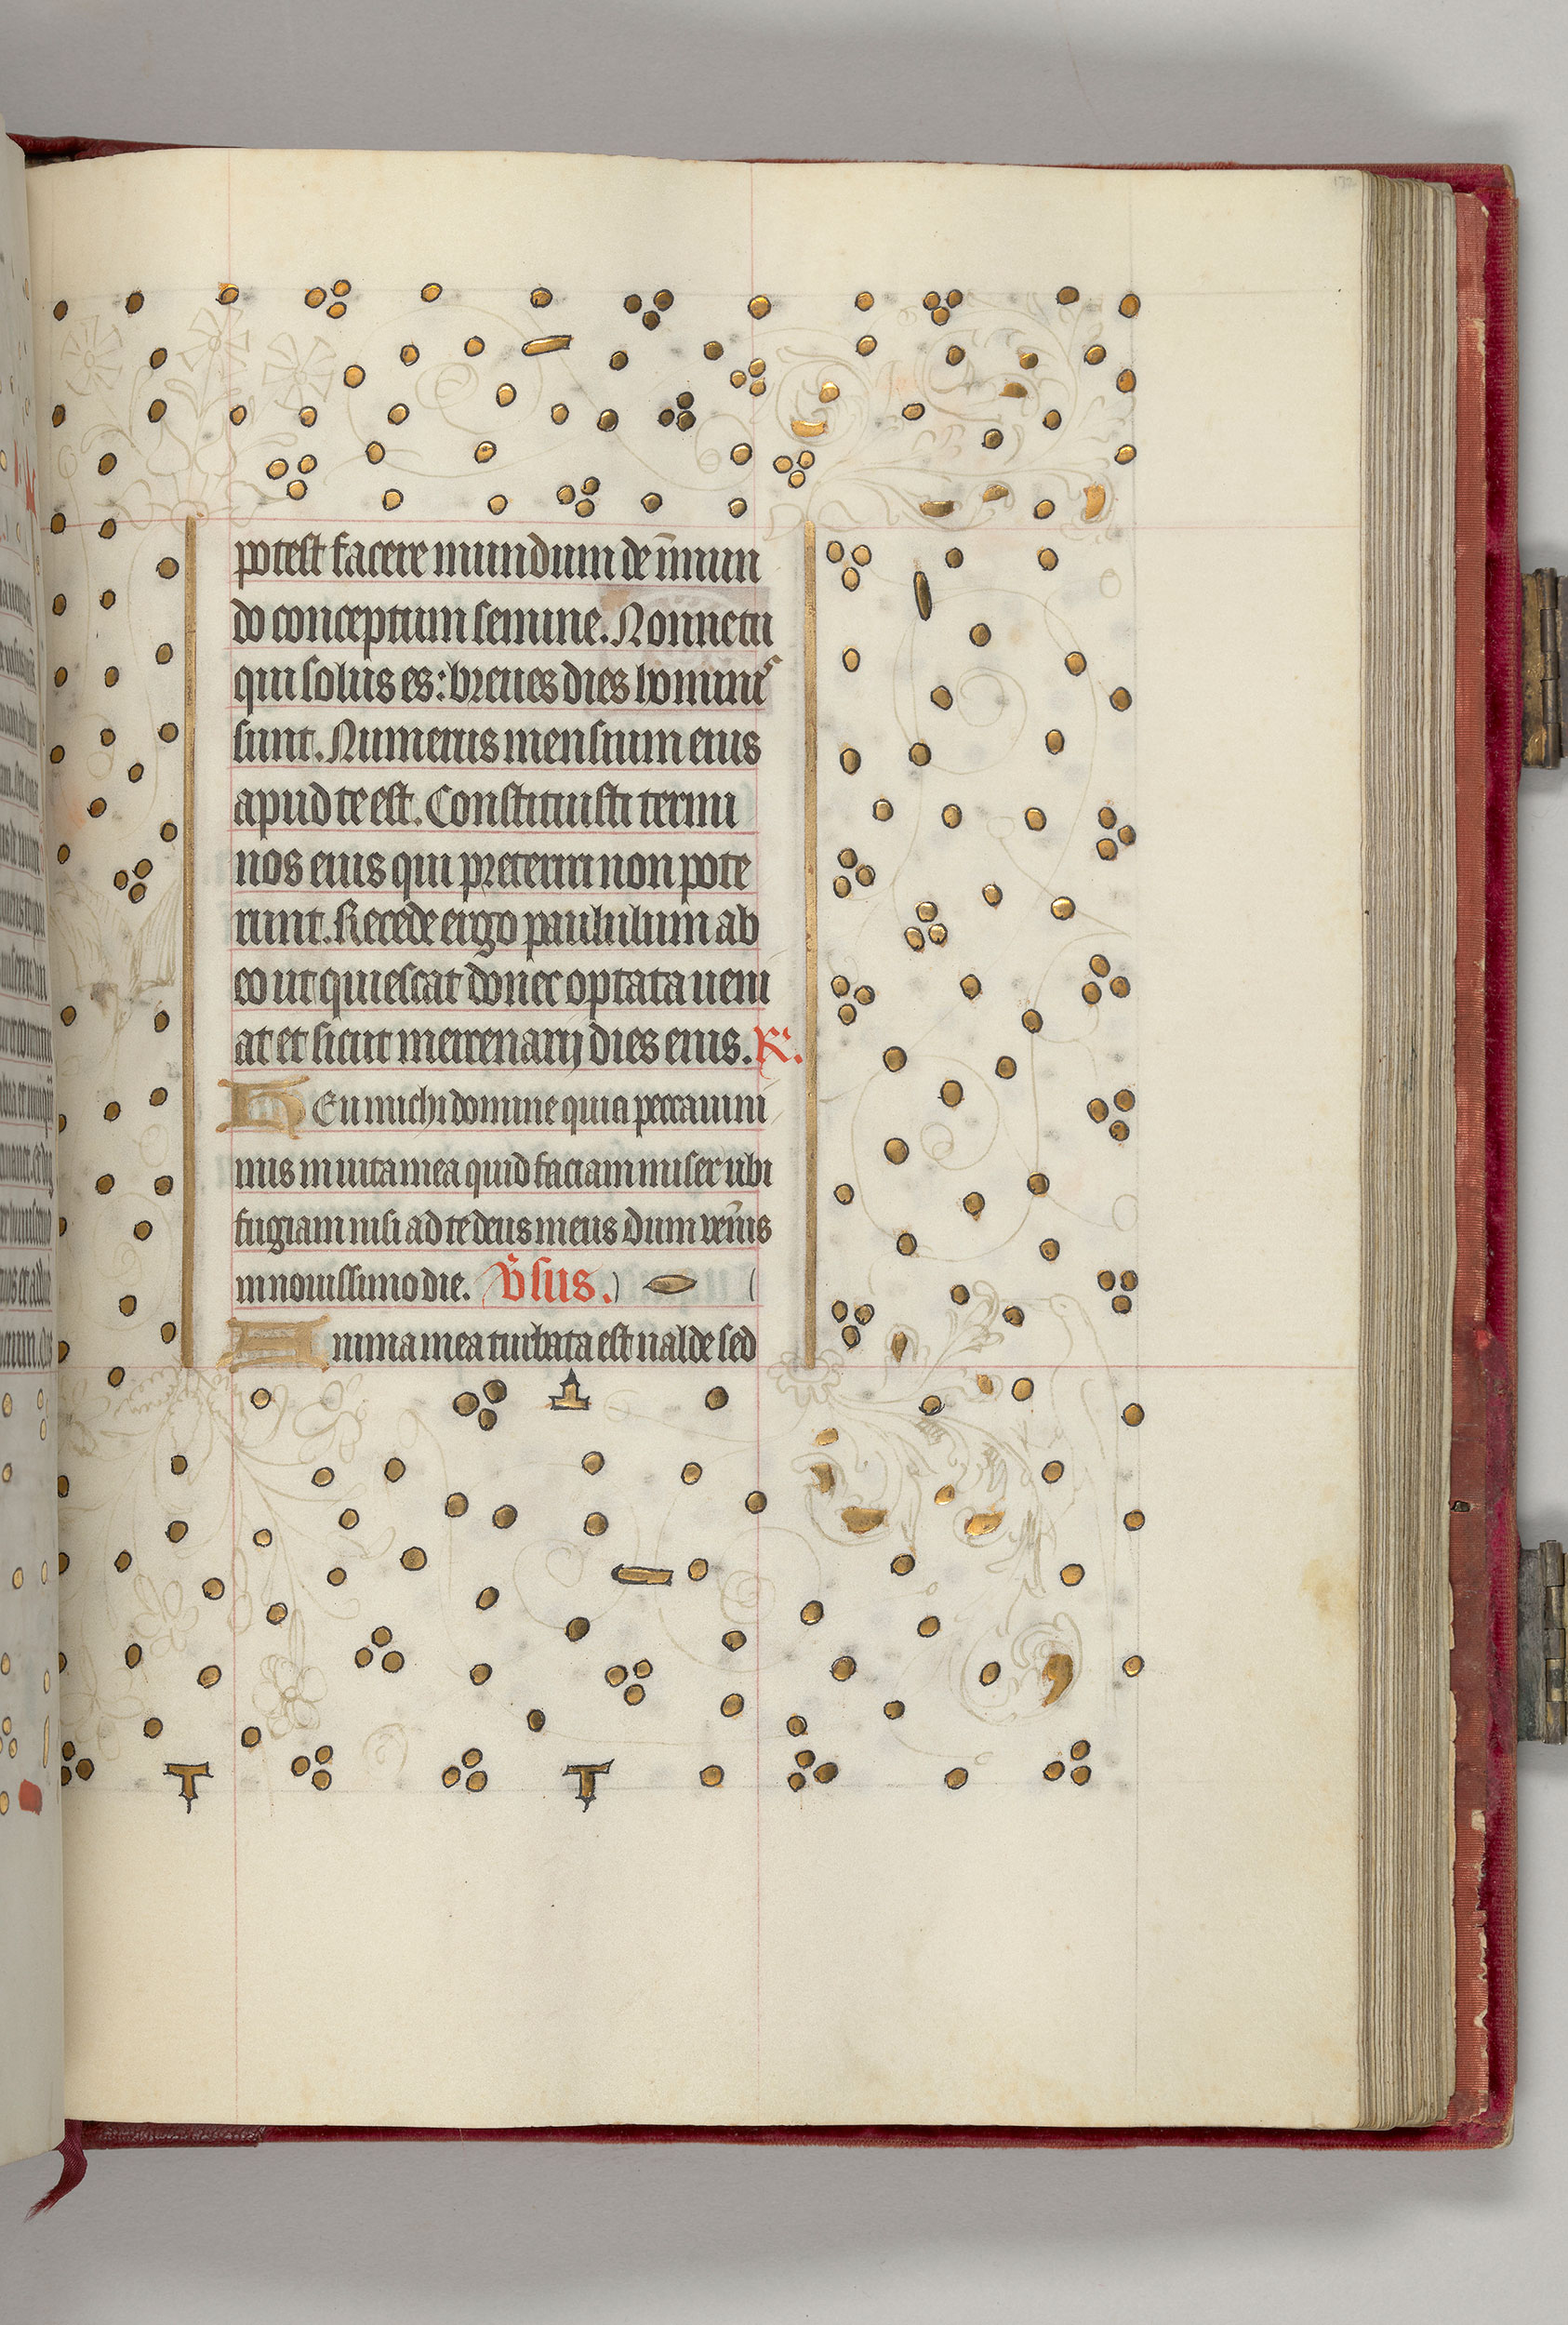 potest facere mundum de īmun
do conceptum semine. Nonne tu
qui solus es: breues dies hominis
sunt. Numerus mensium eius
apud te est. Constituisti termi
nos eius qui preteriri non pote
runt. Recede ergo paululum ab
eo ut quiescat donec optata ueni
at et sicut mercenarij dies eius. R.
Heu michi domine quia peccaui ni
mis in uita mea quid faciam miser ubi
fugiam nisi ad te deus meus dum ven̄is
in nouissimo die. v̄sus.
Anima mea turbata est ualde sed
132